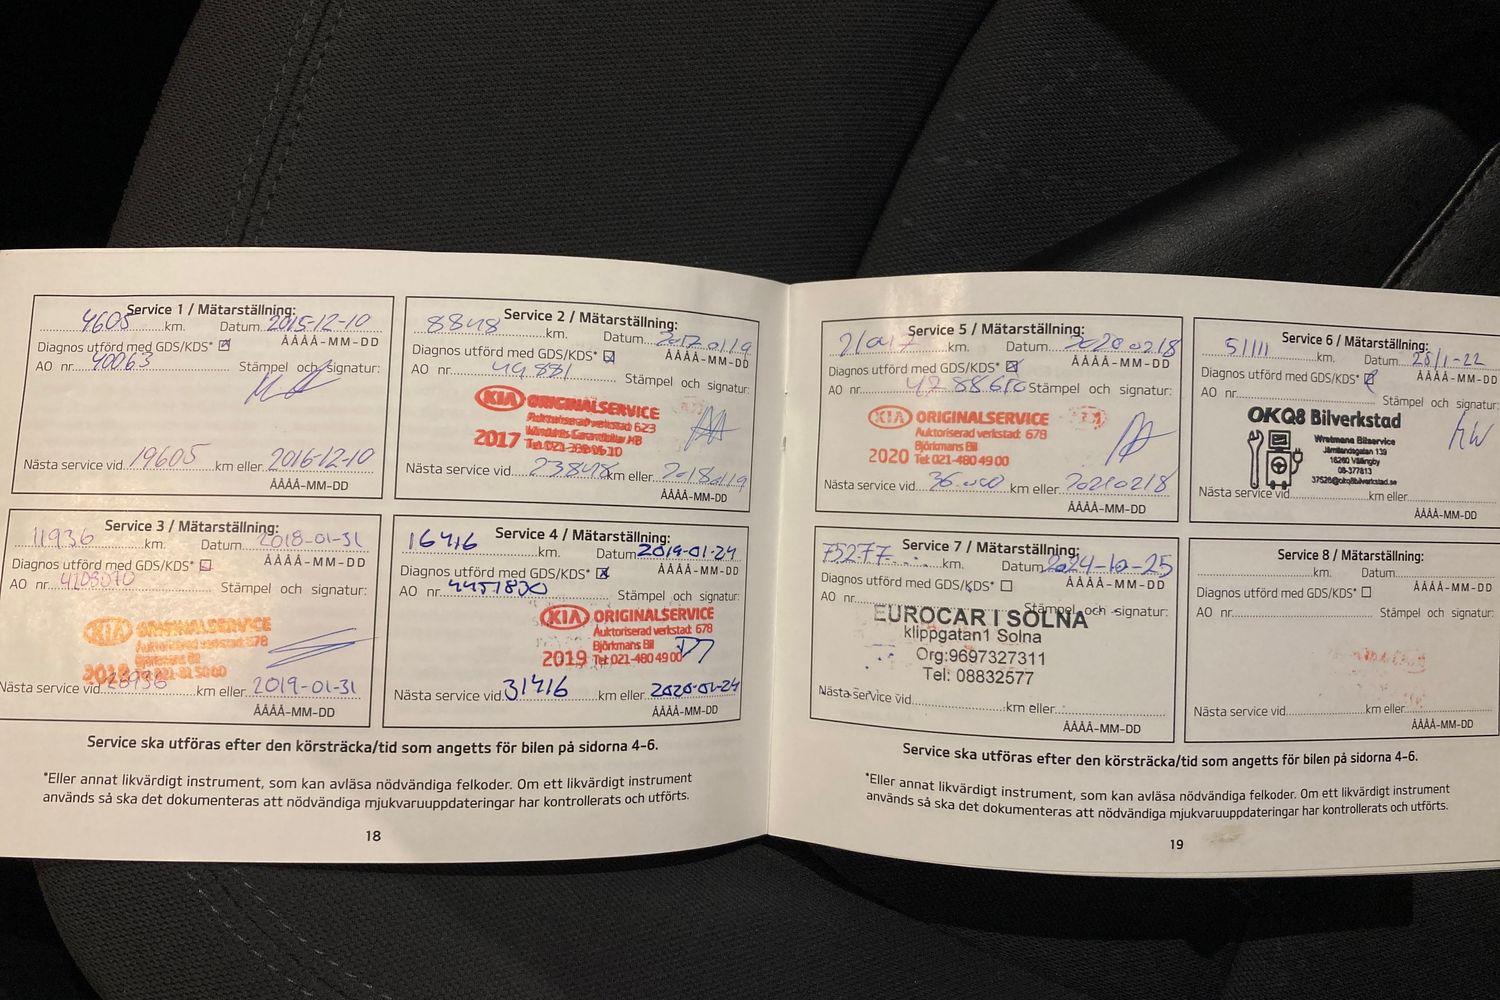 Service 1 / Mätarställning:
4605 km. Datum 2015-12-10
Diagnos utförd med GDS/KDS* ÅÅÅÅ-MM-DD
AO nr. 40063 Stämpel och signatur:
Nästa service vid 19605 km eller 2016-12-10
ÅÅÅÅ-MM-DD
Service 2 / Mätarställning:
8848 km. Datum 20170119
Diagnos utförd med GDS/KDS* ÅÅÅÅ-MM-DD
AO nr. 49881 Stämpel och signatur:
KIA ORIGINALSERVICE
Auktoriserad verkstad 623
2017
Nästa service vid 23848 km eller 20180119
ÅÅÅÅ-MM-DD
Service 3 / Mätarställning:
11936 km. Datum 2018-01-31
Diagnos utförd med GDS/KDS* ÅÅÅÅ-MM-DD
AO nr. 4208070 Stämpel och signatur:
KIA ORIGINALSERVICE
Auktoriserad verkstad 678
Björkmans Bil
2018
Nästa service vid km eller 2019-01-31
ÅÅÅÅ-MM-DD
Service 4 / Mätarställning:
16416 km. Datum 2019-01-24
Diagnos utförd med GDS/KDS* ÅÅÅÅ-MM-DD
AO nr. 4451830 Stämpel och signatur:
KIA ORIGINALSERVICE
Auktoriserad verkstad: 678
Björkmans Bil
2019 Tel: 021-480 49 00
Nästa service vid 31416 km eller 2020-01-24
ÅÅÅÅ-MM-DD
Service ska utföras efter den körsträcka/tid som angetts för bilen på sidorna 4-6.
*Eller annat likvärdigt instrument, som kan avläsa nödvändiga felkoder. Om ett likvärdigt instrument
används så ska det dokumenteras att nödvändiga mjukvaruuppdateringar har kontrollerats och utförts.
18
Service 5 / Mätarställning:
km. Datum 20200218
Diagnos utförd med GDS/KDS* ÅÅÅÅ-MM-DD
AO nr. Stämpel och signatur:
KIA ORIGINALSERVICE
Auktoriserad verkstad: 678
Björkmans Bil
2020 Tel: 021-480 49 00
Nästa service vid 36.000 km eller 20210218
ÅÅÅÅ-MM-DD
Service 6 / Mätarställning:
51111 km. Datum 28/1-22
Diagnos utförd med GDS/KDS* ÅÅÅÅ-MM-DD
AO nr. Stämpel och signatur:
OKQ8 Bilverkstad
Wretmans Bilservice
Jämtlandsgatan 139
16260 Vällingby
08-377813
37528@okq8bilverkstad.se
Nästa service vid km eller
ÅÅÅÅ-MM-DD
Service 7 / Mätarställning:
75277 km. Datum 2024-10-25
Diagnos utförd med GDS/KDS* ÅÅÅÅ-MM-DD
AO nr. Stämpel och signatur:
EUROCAR I SOLNA
klippgatan1 Solna
Org:9697327311
Tel: 08832577
Nästa service vid km eller
ÅÅÅÅ-MM-DD
Service 8 / Mätarställning:
km. Datum
Diagnos utförd med GDS/KDS* ÅÅÅÅ-MM-DD
AO nr. Stämpel och signatur:
Nästa service vid km eller
ÅÅÅÅ-MM-DD
Service ska utföras efter den körsträcka/tid som angetts för bilen på sidorna 4-6.
*Eller annat likvärdigt instrument, som kan avläsa nödvändiga felkoder. Om ett likvärdigt instrument
används så ska det dokumenteras att nödvändiga mjukvaruuppdateringar har kontrollerats och utförts.
19